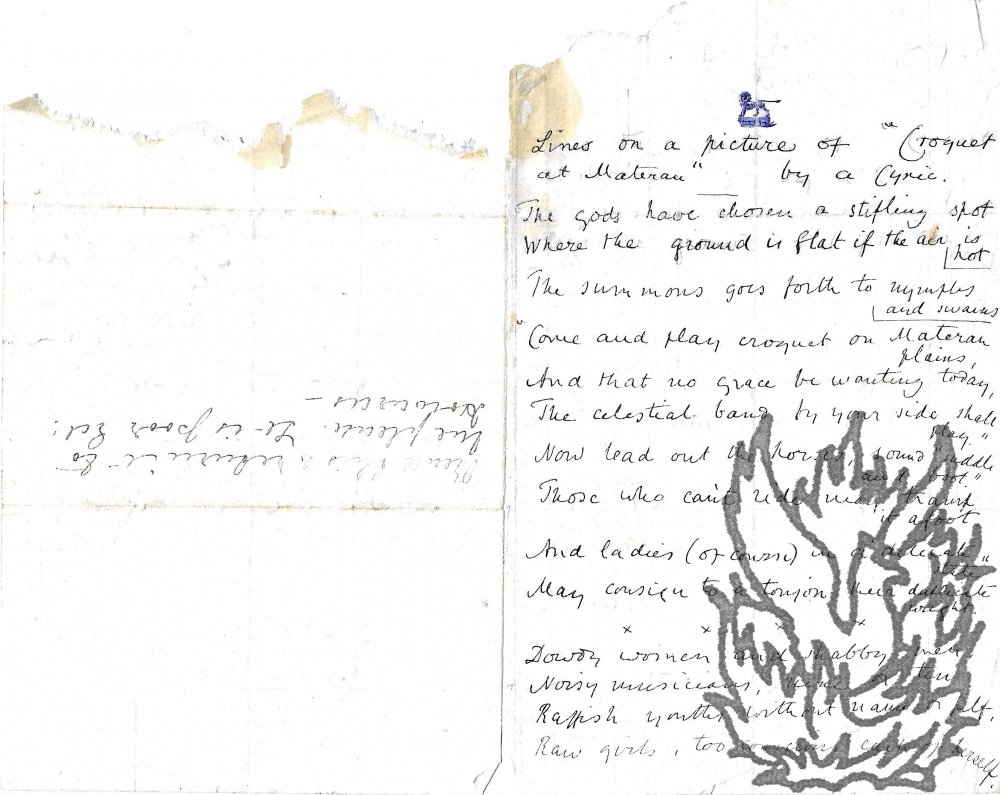 Lines on a picture of "Croquet
at Materan" by a Cynic.
The gods have chosen a stifling spot
Where the ground is flat if the air is
hot
The summons goes forth to nymphs
and swains
"Come and play croquet on Materan
plains,
And that no grace be wanting today,
The celestial band by your side shall
play."
Now lead out the horses, sound "saddle
and boot"
Those who can't ride may tramp
it afoot
And ladies (of course) in a "delicate
state"
May consign to a tonjon their duplicate
weight.
x x x x
Dowdy women and shabby men,
Noisy musicians, nine or ten
Raffish youths without name or pelf,
Raw girls, too conscious each of herself,
Read this & return it to
me please. It is poor Col: